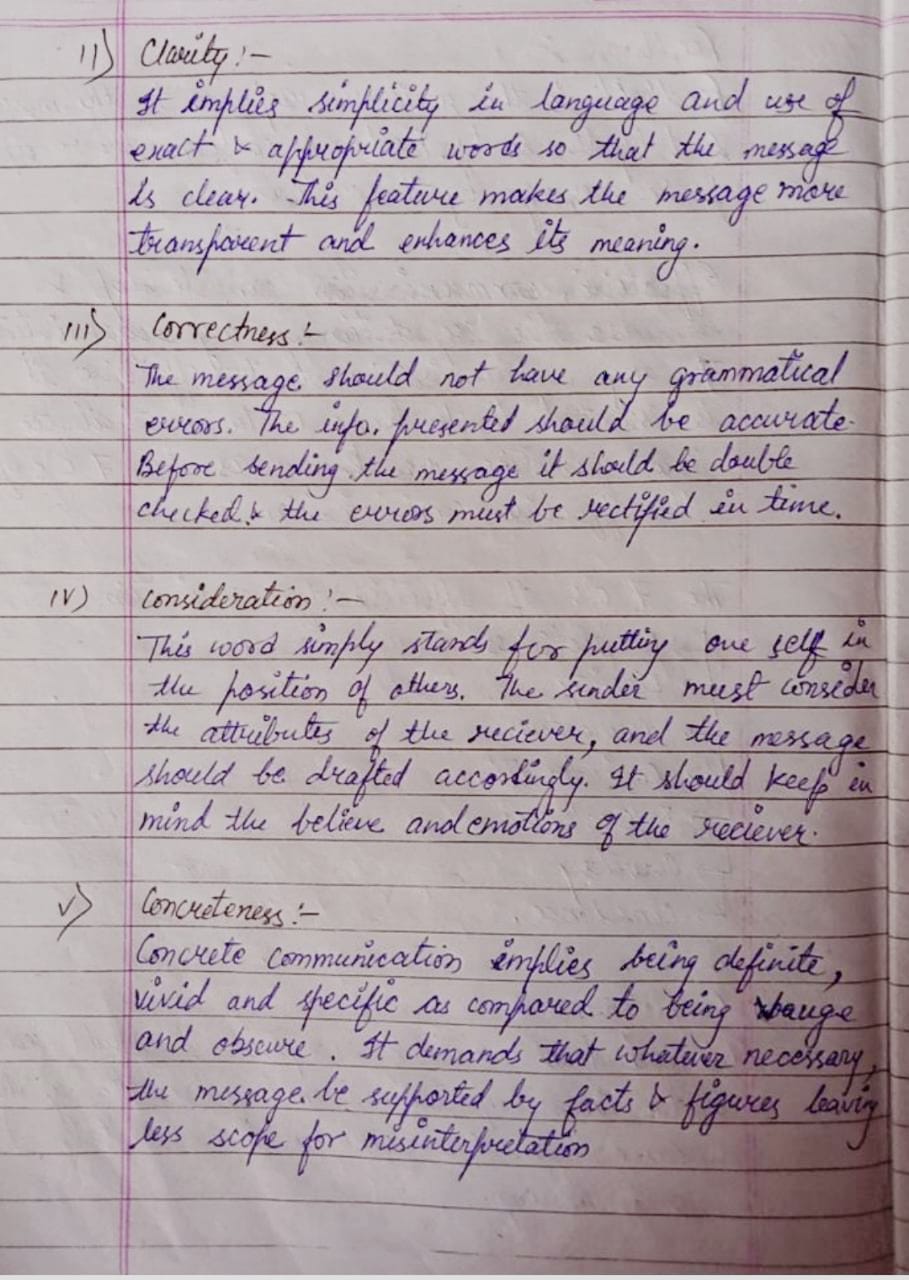 II) Clarity :-
It implies simplicity in language and use of
exact & appropriate words so that the message
is clear. This feature makes the message more
transparent and enhances its meaning.
III) Correctness :-
The message should not have any grammatical
errors. The info. presented should be accurate.
Before sending the message it should be double
checked & the errors must be rectified in time.
IV) Consideration :-
This word simply stands for putting one self in
the position of others. The sender must consider
the attributes of the reciever, and the message
should be drafted accordingly. It should keep in
mind the believe and emotions of the reciever.
V) Concreteness :-
Concrete communication implies being definite,
vivid and specific as compared to being vauge
and obscure. It demands that whatever necessary,
the message be supported by facts & figures leaving
less scope for misinterpretation